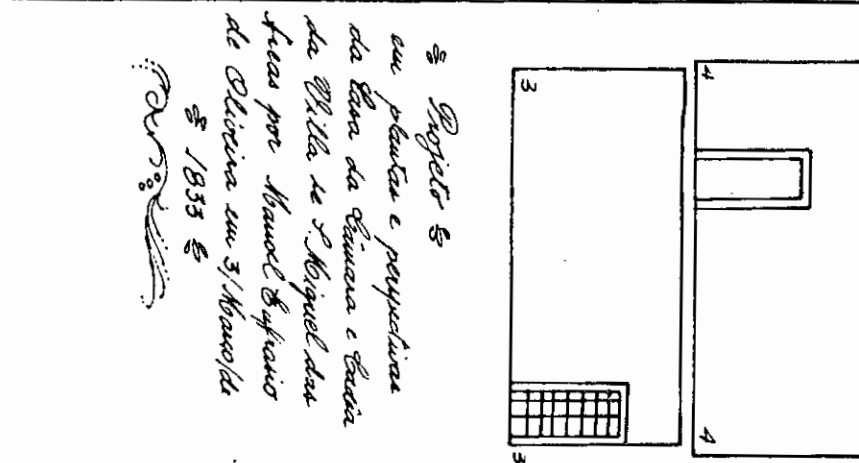 Projeto
em plantas e perspectivas
da Casa da Câmara e Cadia
da Villa de S. Miguel das
Areas por Manoel Eufrasio
de Oliveira em 3/Março/de
1833
3
3
4
4